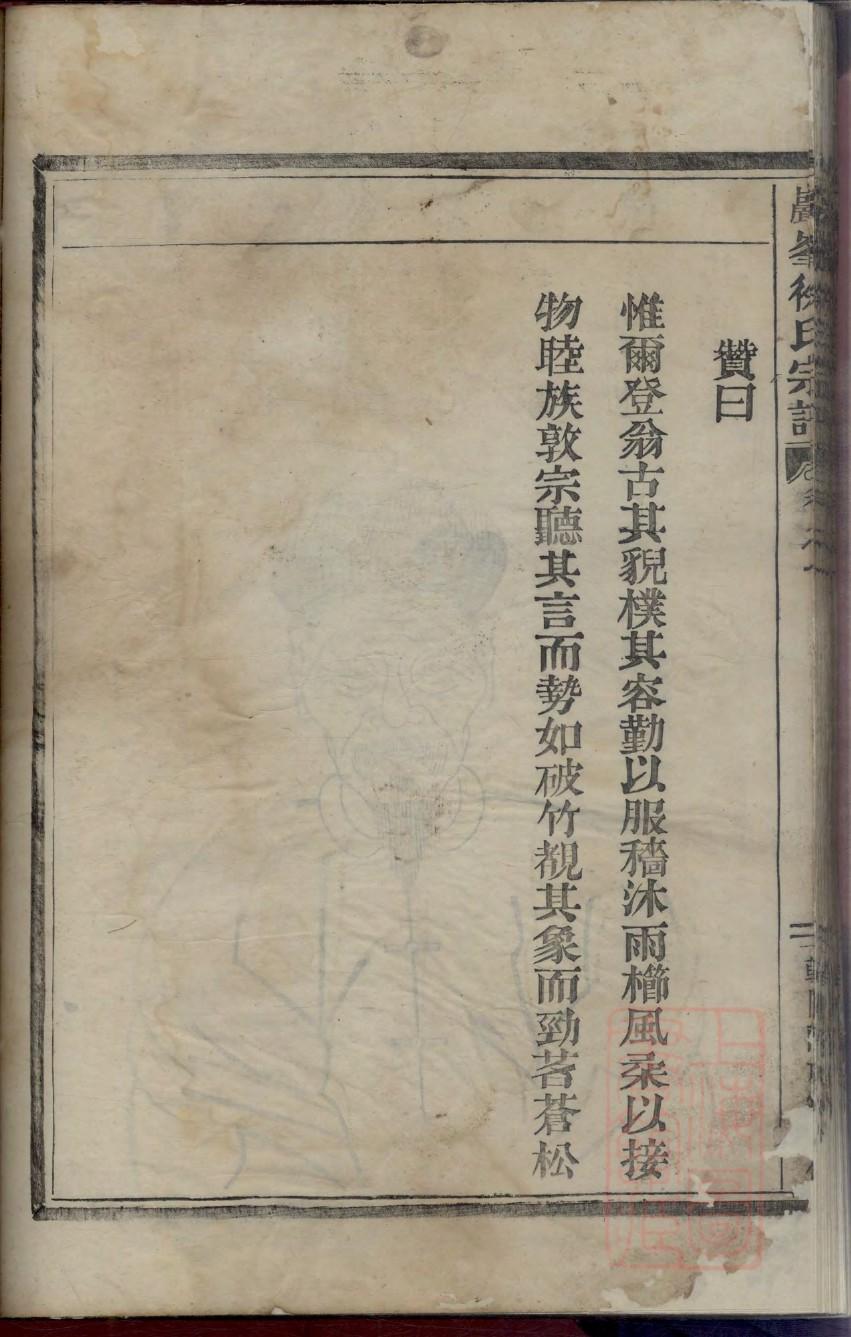 贊曰
惟爾登翁古其貌樸其容勤以服穡沐雨櫛風柔以接
物睦族敦宗聽其言而勢如破竹覩其象而勁若蒼松
峯徐氏宗譜